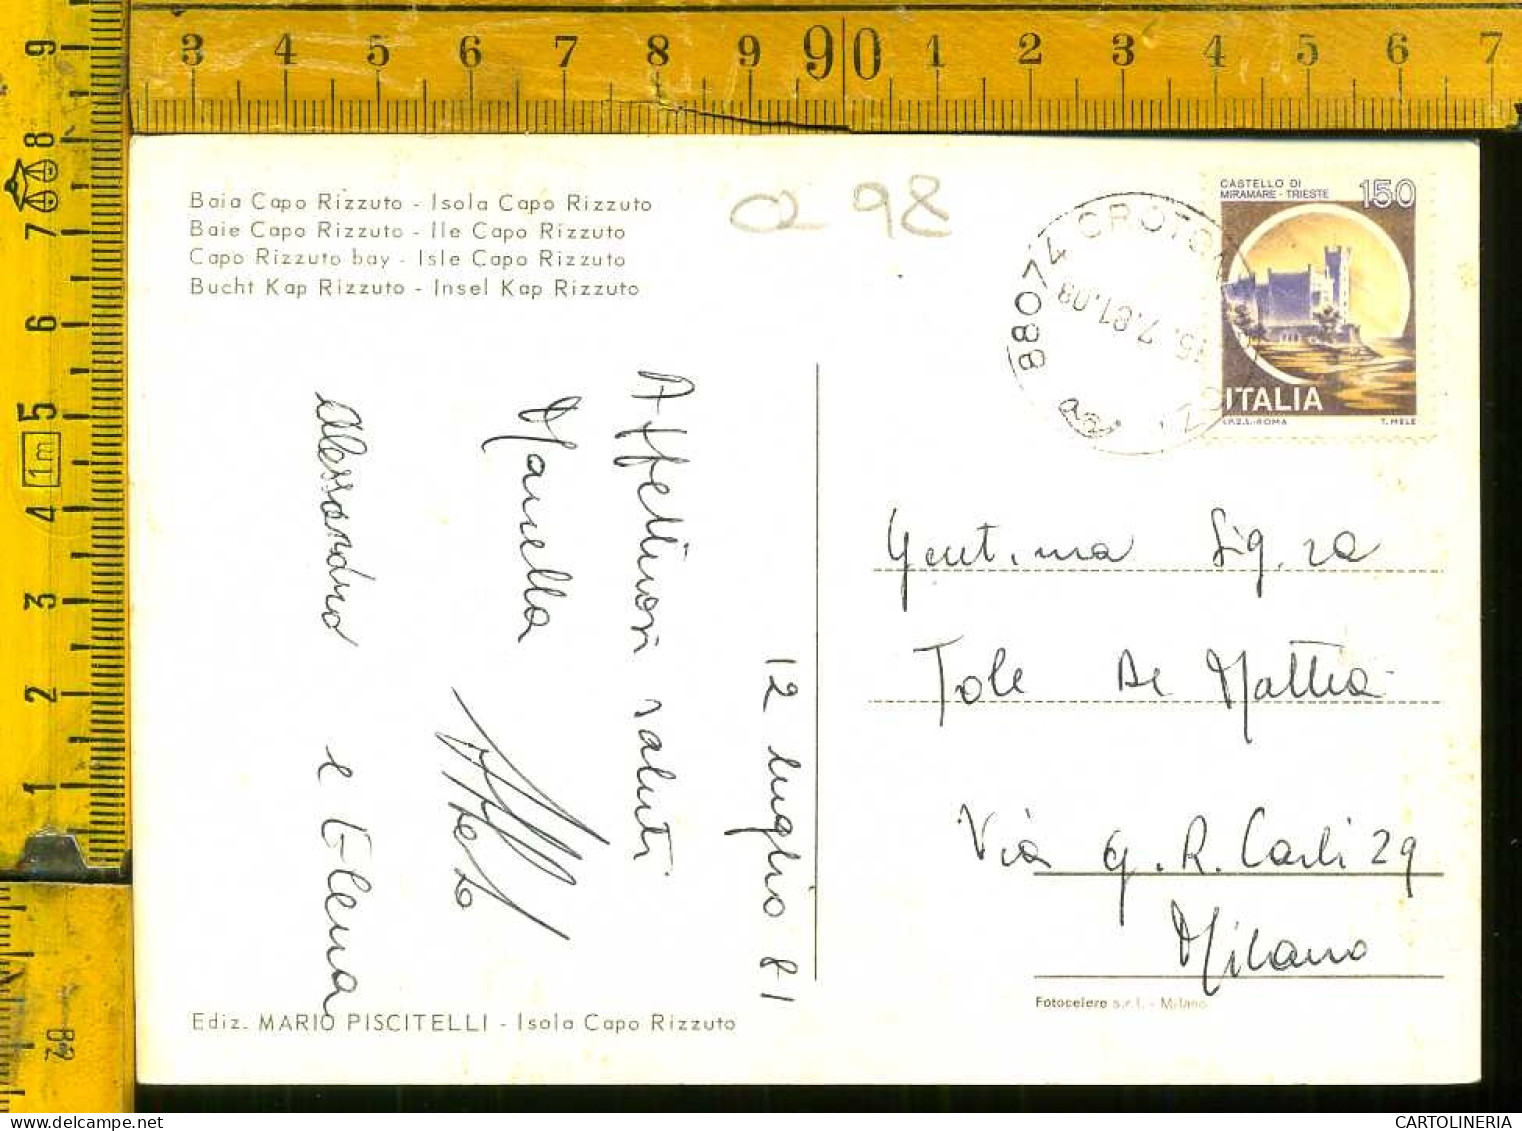 3 4 5 6 7 8 9 90 1 2 3 4 5 6 7
9
8
7
6
5
1m
4
3
2
1
82
Baia Capo Rizzuto - Isola Capo Rizzuto
Baie Capo Rizzuto - Ile Capo Rizzuto
Capo Rizzuto bay - Isle Capo Rizzuto
Bucht Kap Rizzuto - Insel Kap Rizzuto
a 98
88074 CROTON
15.7.81.08
CASTELLO DI
MIRAMARE - TRIESTE
150
ITALIA
I.P.Z.S.-ROMA T. MELE
12 luglio 81
Affettuosi saluti
Mariella
Alessandro e Elena
Gent.ma Sig.ra
Tole De Mattia
Via G. R. Carli 29
Milano
Fotocelere s.r.l. - Milano
Ediz. MARIO PISCITELLI - Isola Capo Rizzuto
CARTOLINERIA